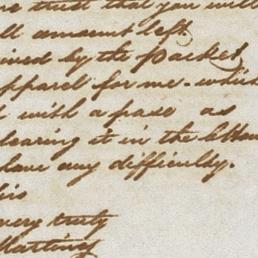 trust that you will
amount left
by the packet
apparel for me - which
with a pass as
clearing it in the
have any difficulty.
his
very truly
Martinez